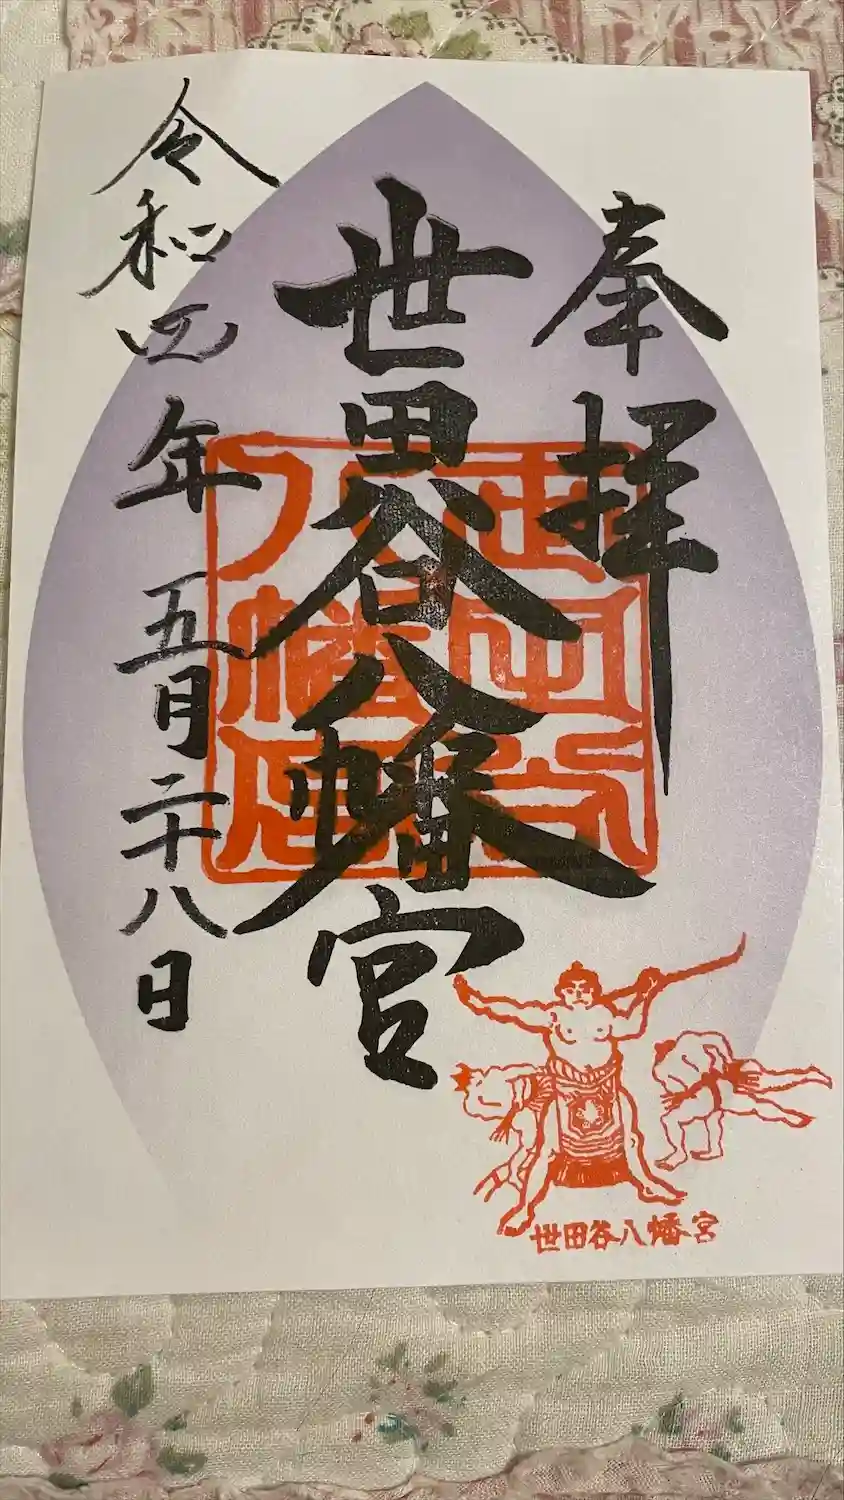 奉拝
世田谷八幡宮
世田谷
八幡宮
令和四年五月二十八日
世田谷八幡宮